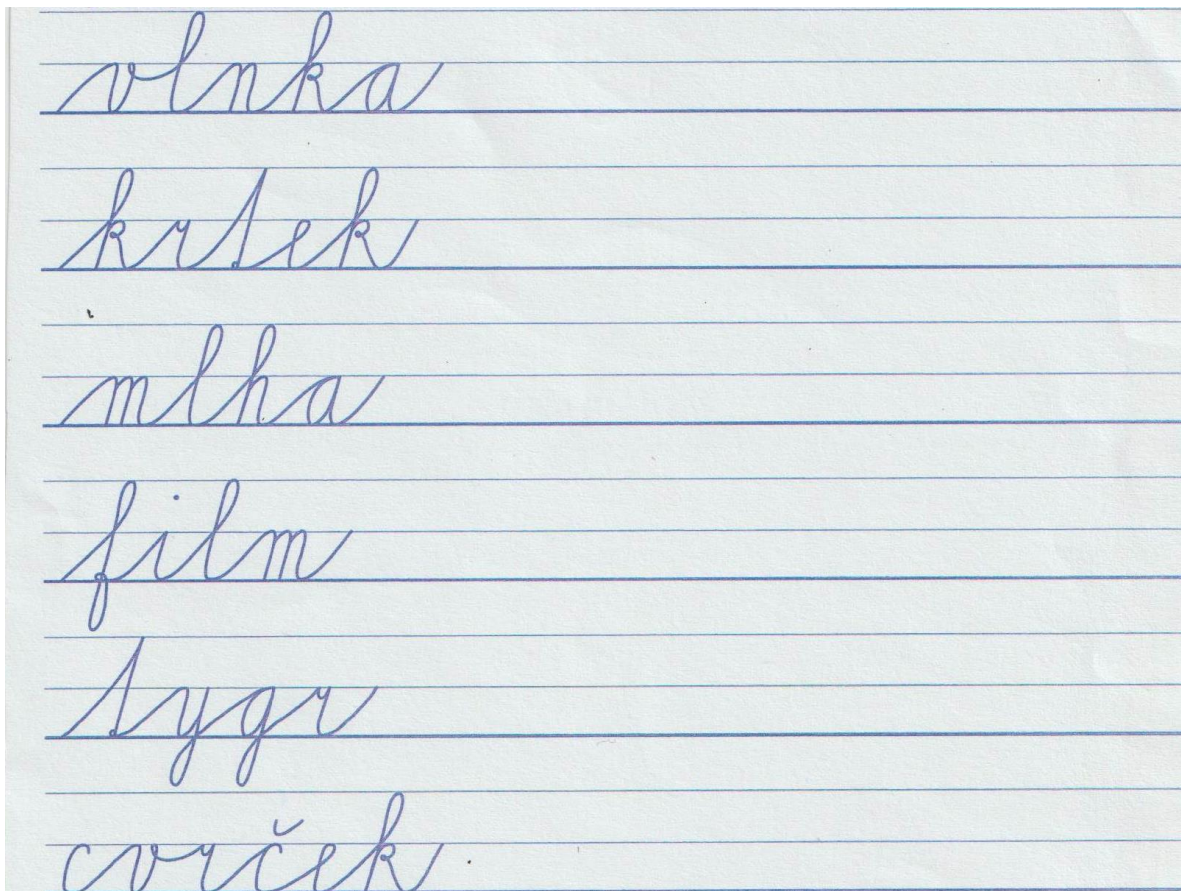 vlnka
krtek
mlha
film
tygr
cvrček